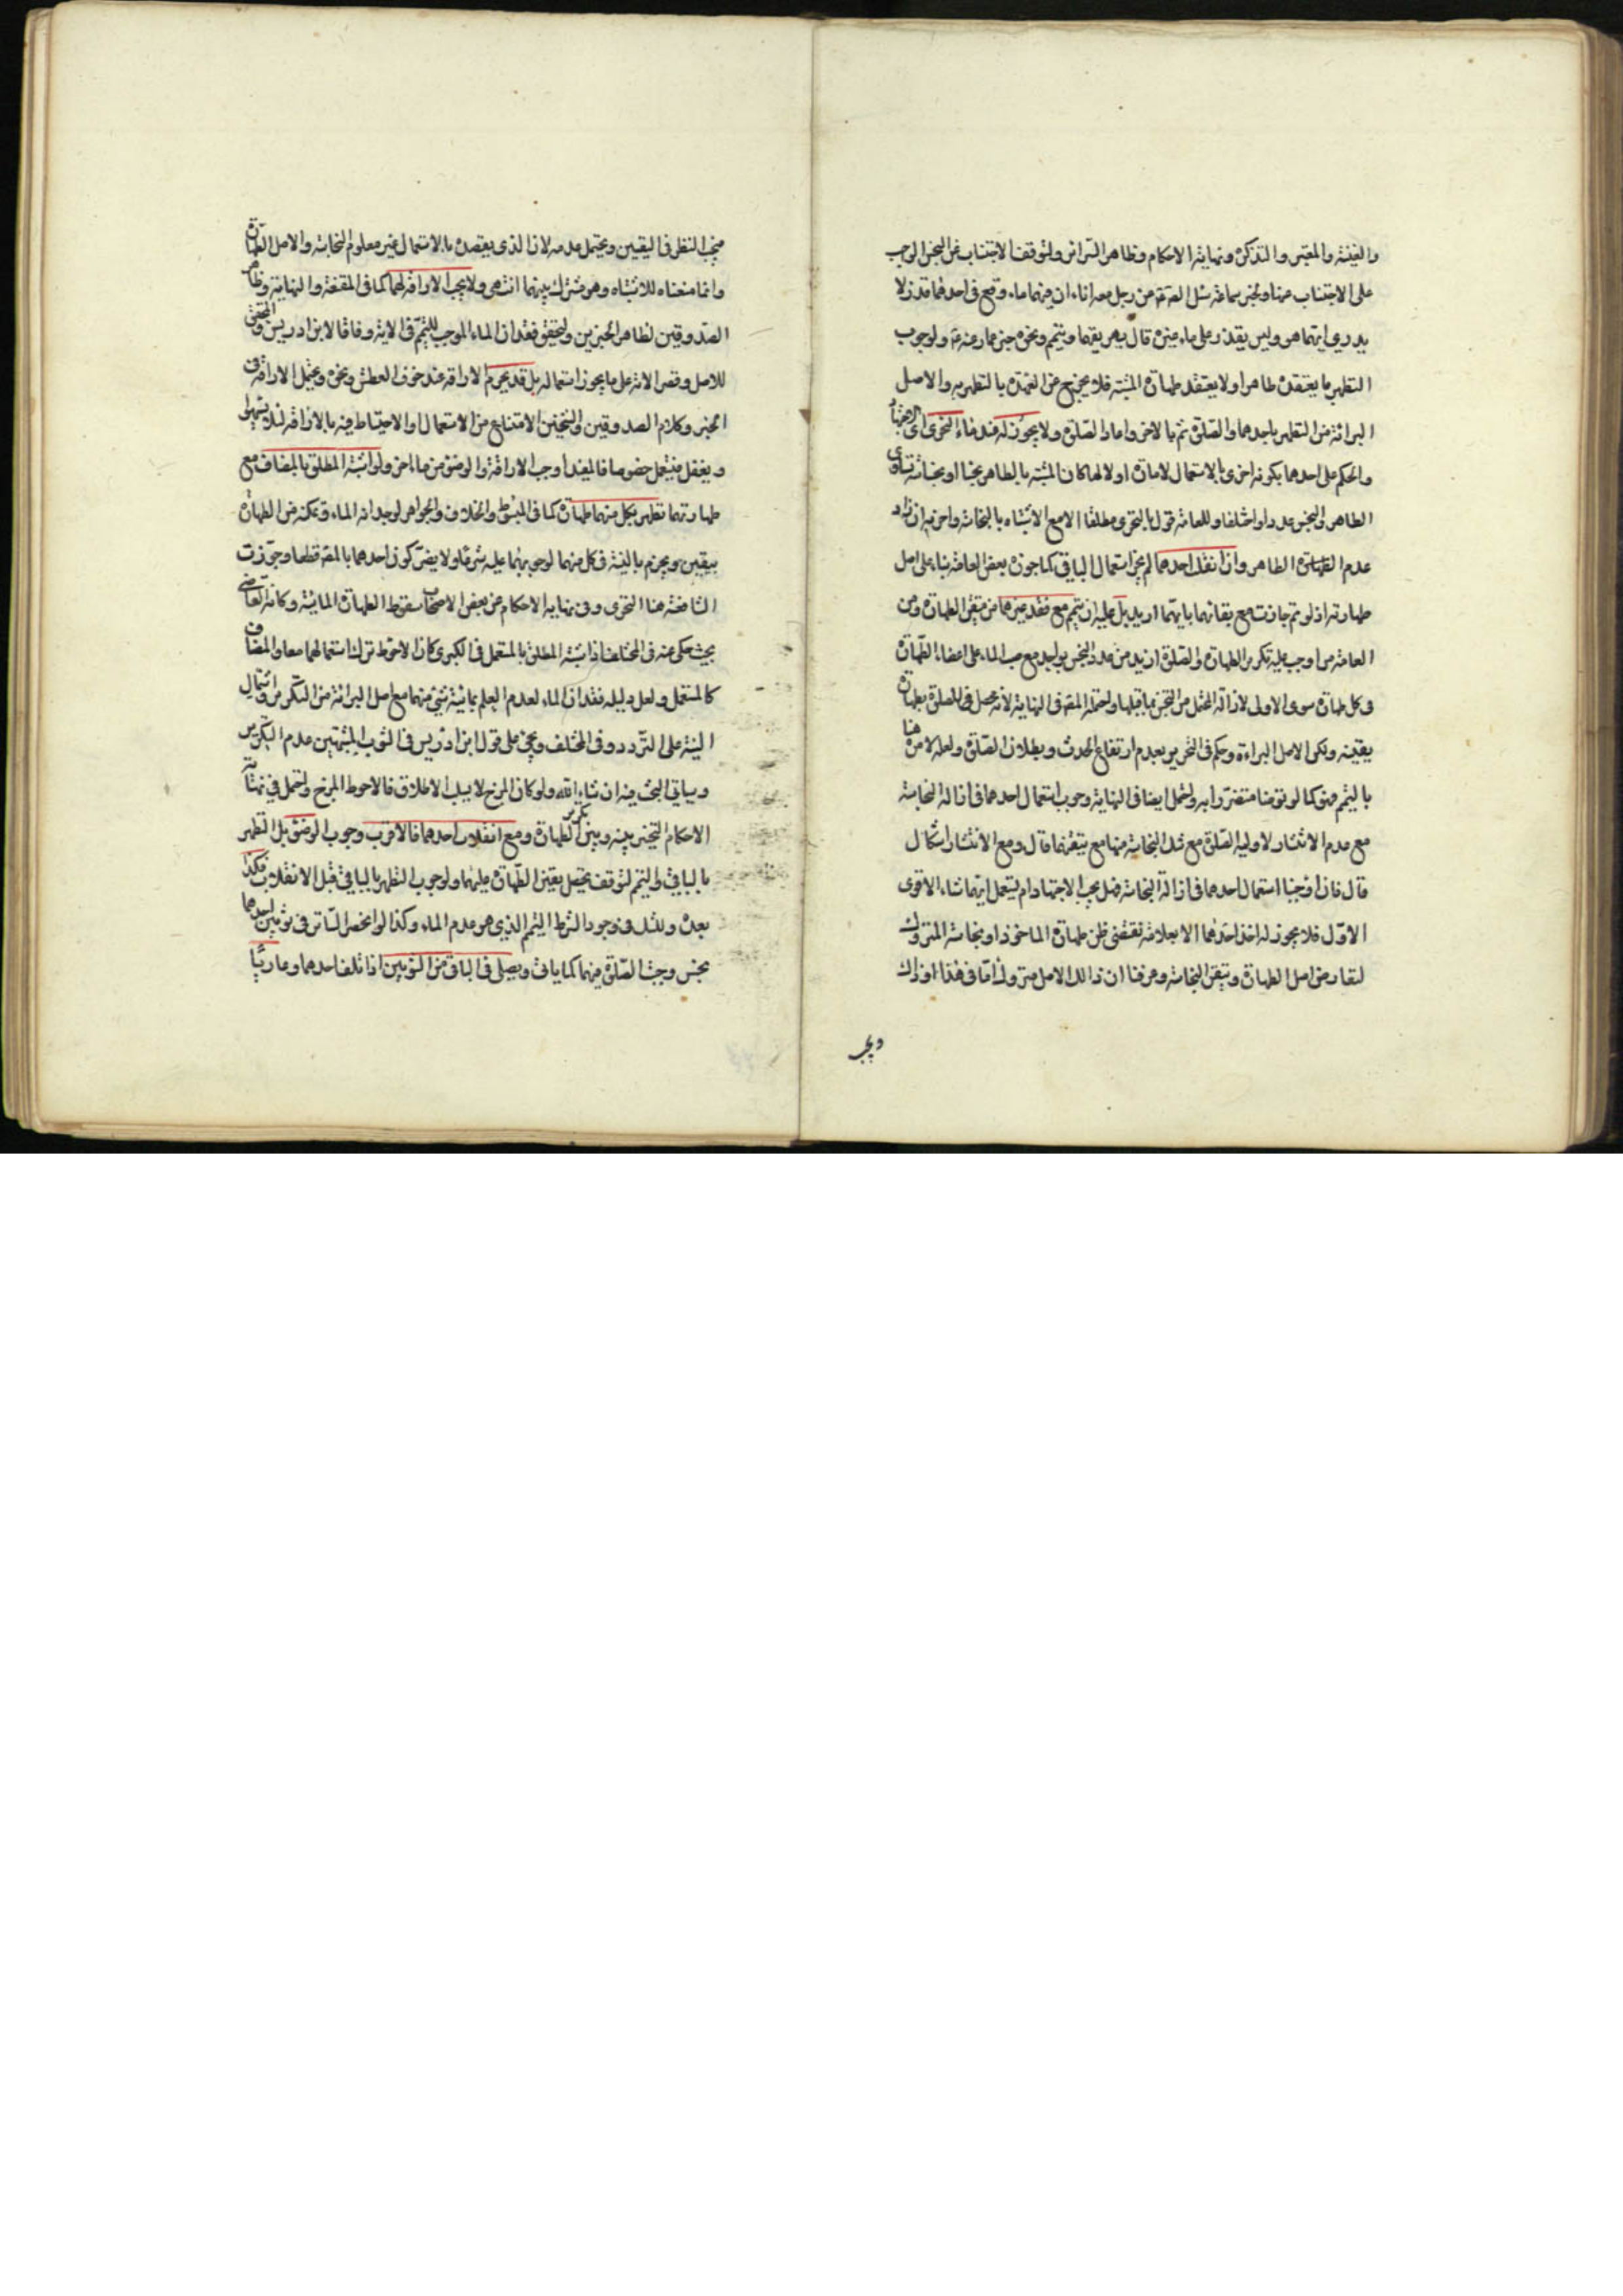 والغنية والمعتبر والتذكرة ونهاية الاحكام وظاهر السرائر ولتوقف الاجتناب عن النجس الواجب
على الاجتناب عنها ولخبر سماعة سئل الصادق عن رجل معه اناءان فيهما ماء وقع في احدهما قذر لا
يدري ايهما هو وليس يقدر على ماء غيره قال يهريقهما ويتيمم ونحوه خبر عمار عنه ع ولوجوب
التطهر بما يعتقده طاهرا ولا يعتقد طهارة المشتبه فلا يخرج عن العهدة بالتطهر به والاصل
البرائة من التطهر باحدهما والصلوة ثم بالاخر واعادة الصلوة ولا يجوز له عندناء التحرى اى الاجتهاد
والحكم على احدهما بكونه احرى بالاستعمال لامارة اولا لها كان المشتبه بالطاهر نجسا او نجاسة تساوى
الطاهر والنجس عددا واختلفا وللعامة قول بالتحرى مطلقا الا مع الاشتباه بالنجاسة واخر به ان زاد
عدم الطهارة الطاهر وان انقلب احدهما لم يجز استعمال الباقى كما جوزه بعض العامة بناء على اصل
طهارته اذ لو تم جازت مع بقائهما بايهما اريد بل عليه ان يتيمم مع فقد غيرهما من متيقن الطهارة ومن
العامة من اوجب عليه تكرير الطهارة والصلوة ازيد من عدد النجس بواحد مع صب الماء على اعضاء الطهارة
فى كل طهارة سوى الاولى لازالة المحتمل من التنجس بما قبلها واحتمله المص فى النهاية لانه يحصل فى الصلوة بطهارة
يقينية ولكن الاصل البراءة وحكم فى التحرير بعدم ارتفاع الحدث وبطلان الصلوة ولعله لامره هنا
باليتيم فهو كما لو توضا متضررا به واحتمل ايضا فى النهاية وجوب استعمال احدهما فى ازالة النجاسة
مع عدم الانتشار لاولية الصلوة مع شك النجاسة منها مع تيقنها قال ومع الانتشار اشكال
قال فان اوجبنا استعمال احدهما فى ازالة النجاسة فهل يجب الاجتهاد ام يستعمل ايهما شاء الاقوى
الاول فلا يجوز له اخذ احدهما الا بعلامة تقتضى ظن طهارة الماخوذ او نجاسة المتروك
لتعارض اصل الطهارة وتيقن النجاسة وعرفنا ان ذالك الاصل متروك اما فى هذا او ذاك
ويجب
فيجب النظر فى اليقين ويحتمل عدمه لان الذى يقصده بالاستعمال غير معلوم النجاسة والاصل الطهارة
وانما منعناه للاشتباه وهو مشترك بينهما انتهى ولا يجب الاراقة لهما كما فى المقنعة والنهاية وظاهر
الصدوقين لظاهر الخبرين ولتحقق فقدان الماء الموجب للتيمم فى الاية وفاقا لابن ادريس والمحقق
للاصل وقصر الاية على ما يجوز استعماله بل قد يحرم الاراقة عند خوف العطش ونحوه ويحتمل الاراقة فى
الخبر وكلام الصدوقين والشيخين الامتناع من الاستعمال او الاحتياط فيه بالاراقة لئلا يشتبها
ويغفل فيستعمل خصوصا فالمفيد اوجب الاراقة والوضوء من ماء اخر ولو اشتبه المطلق بالمضاف مع
طهارتهما تطهر بكل منهما طهارة كما فى المبسوط والخلاف والجواهر لوجدانه الماء وتمكنه من الطهارة
بيقين ويجزم بالنية فى كل منهما لوجوبهما عليه شرعا ولا يضر كون احدهما بالمضاف قطعا وجوزت
الشافعية هنا التحرى وفى نهاية الاحكام عن بعض الاصحاب سقوط الطهارة المائية وكانه القاضى
حيث حكى عنه فى المختلف اذا اشتبه المطلق بالمستعمل فى الكبرى كان الاحوط ترك استعمالهما معا والمضاف
كالمستعمل ولعل دليله فقدان الماء لعدم العلم بمائية شئ منهما مع اصل البرائة من التكرير واشتمال
النية على التردد وفى المختلف ويجئ على قول ابن ادريس فى الثوب المشتبهين عدم التكرير
وسياتى البحث فيه ان شاء الله ولو كان المزج لا يسلب الاطلاق فالاحوط المزج واحتمل فى نهاية
الاحكام التخيير بينه وبين تكرير الطهارة ومع انقلاب احدهما فالاقرب وجوب الوضوء بل التطهر
بالباقى والتيمم لتوقف تحصيل يقين الطهارة عليهما ولوجوب التطهر بالباقى قبل الانقلاب فكذا
بعده وللشك فى وجود الشرط التيمم الذى هو عدم الماء وكذا لو انحصر الساتر فى ثوبين احدهما
نجس وجبت الصلوة فيهما كما ياتى ويصلى فى الباقى من الثوبين اذا تلف احدهما وعاريا